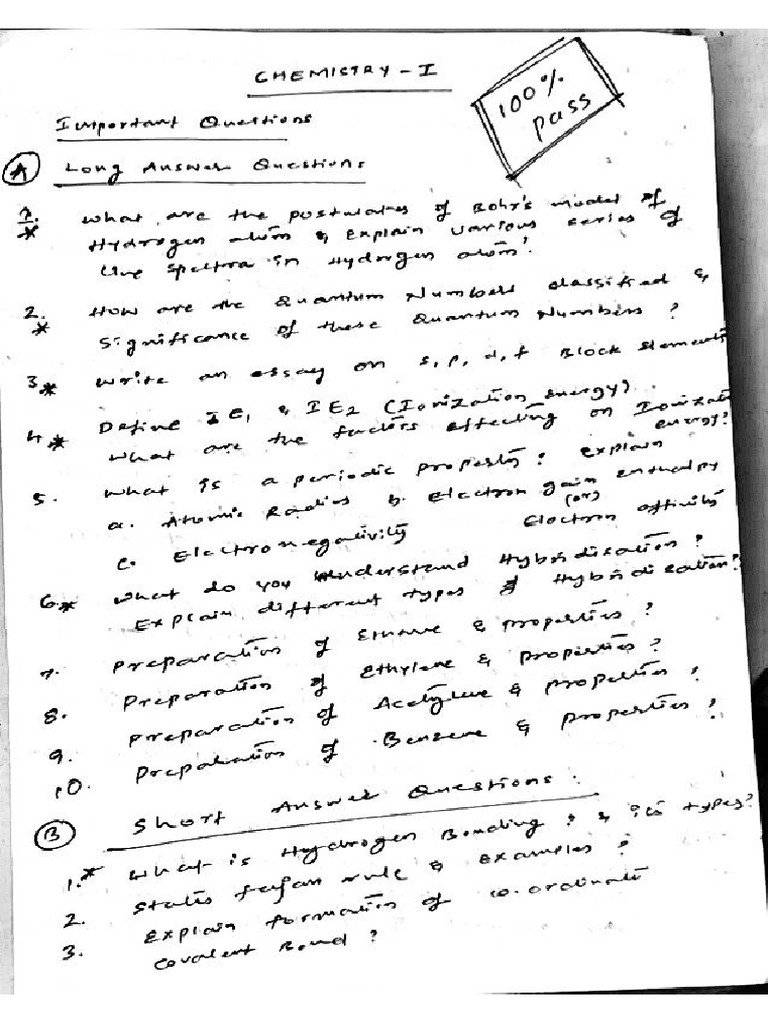 CHEMISTRY - I
100%
pass
Important Questions
A Long Answer Questions
1.* What are the postulates of Bohr's model of
Hydrogen atom & Explain various series of
line spectra in Hydrogen atom?
2.* How are the Quantum Numbers classified &
significance of these Quantum Numbers ?
3.* Write an essay on s, p, d, f Block Elements
4.* Define IE1 & IE2 (Ionization Energy).
What are the factors effecting on Ionization
energy?
5. What is a periodic property? Explain
a. Atomic Radius b. Electron gain enthalpy
(or)
c. Electronegativity Electron affinity
6.* What do you understand Hybridization ?
Explain different types of Hybridization?
7. Preparation of Ethane & properties ?
8. Preparation of Ethylene & properties ?
9. Preparation of Acetylene & properties ?
10. Preparation of Benzene & properties ?
B Short Answer Questions :
1.* What is Hydrogen Bonding ? & its types?
2. States fajan rule & Examples ?
3. Explain formation of co-ordinate
covalent Bond ?